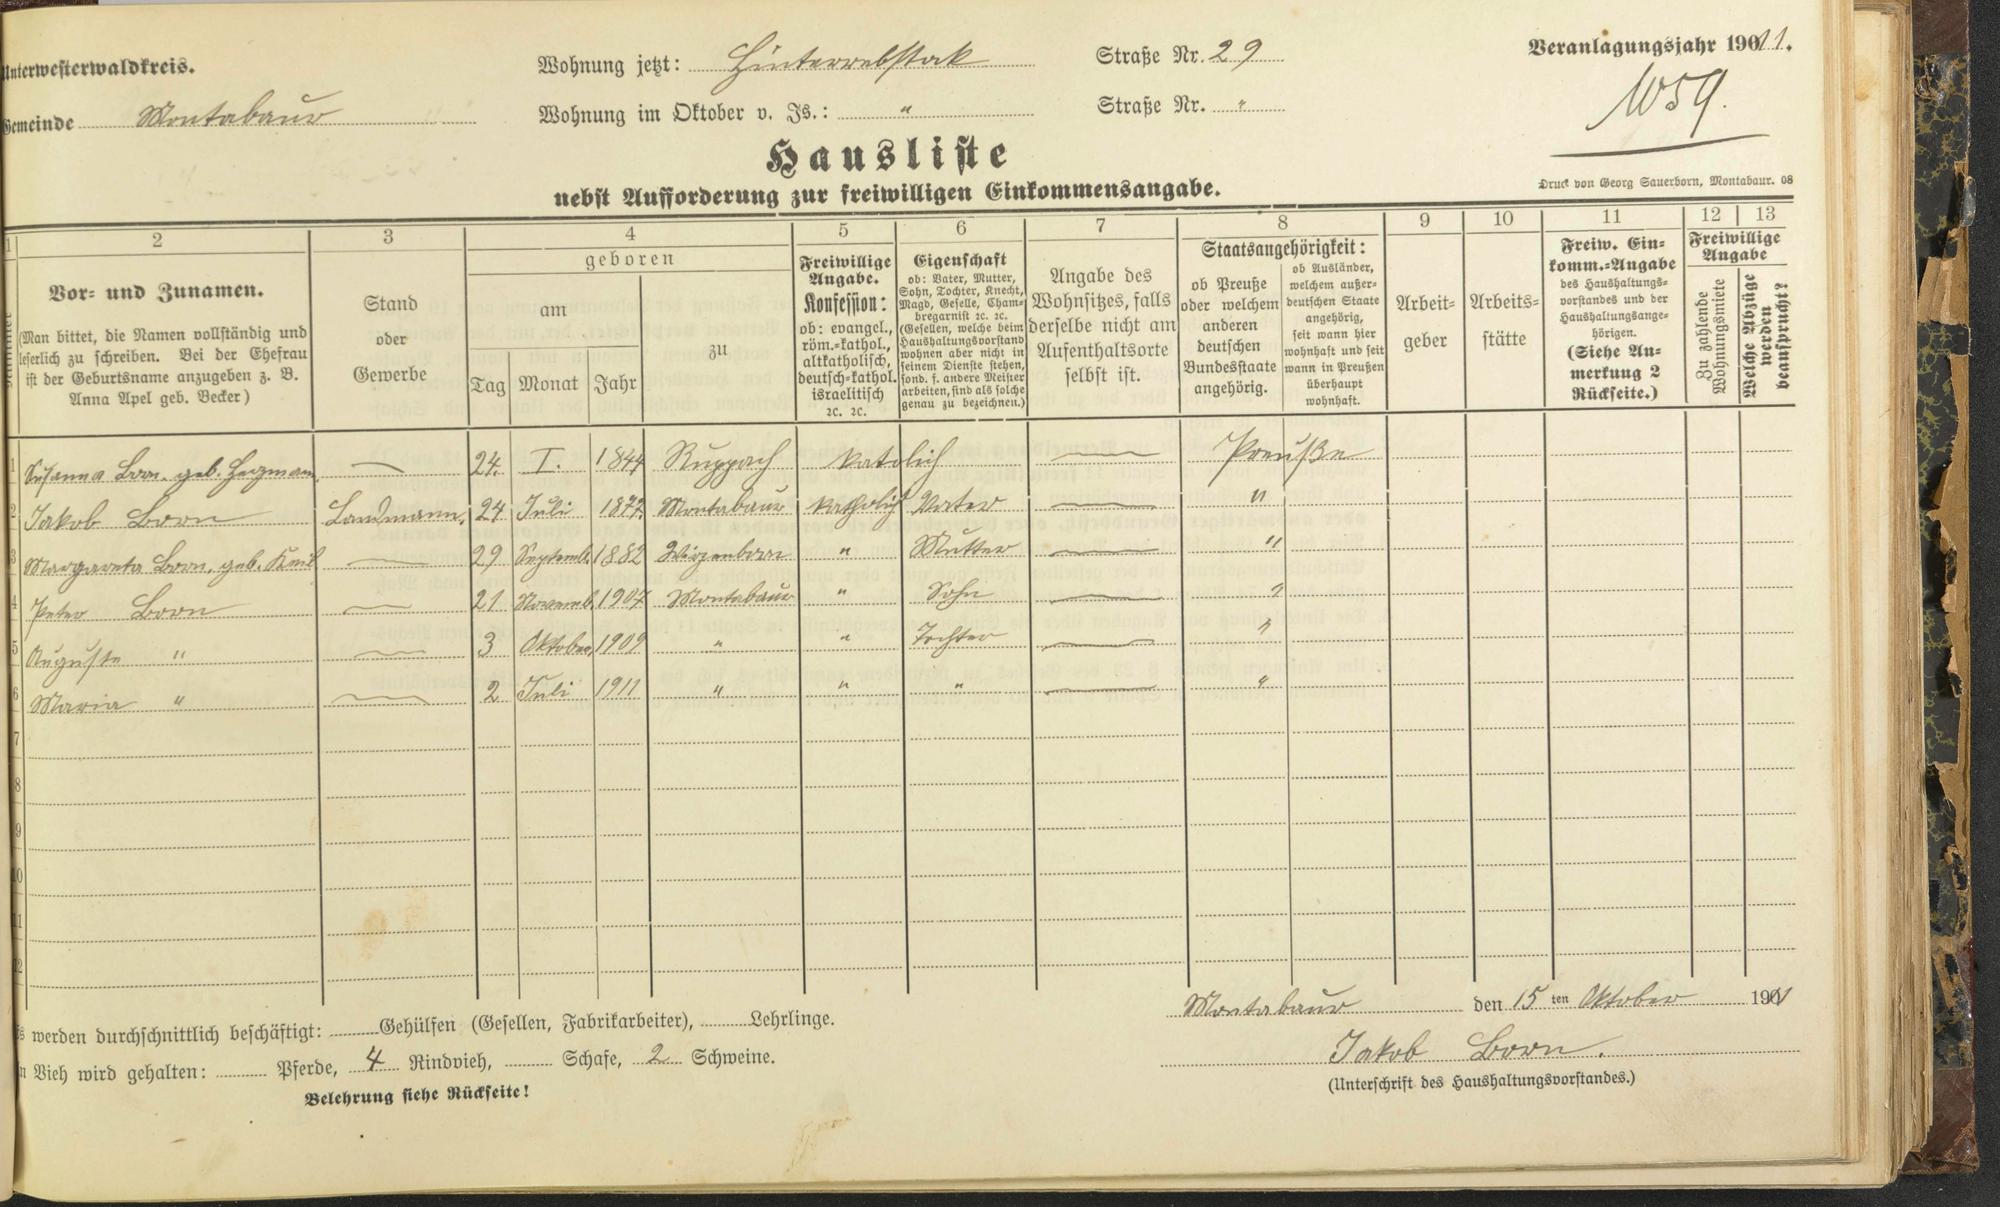 Unterwesterwaldkreis.
Wohnung jetzt: Hinterrebstock Straße Nr. 29
Veranlagungsjahr 1911.
Gemeinde Montabaur
Wohnung im Oktober v. Js.: " Straße Nr. "
1059.
Hausliste
nebst Aufforderung zur freiwilligen Einkommensangabe.
Druck von Georg Sauerborn, Montabaur. 08
1 2 3 4 5 6 7 8 9 10 11 12 13
Nummer
Vor- und Zunamen.
(Man bittet, die Namen vollständig und
leserlich zu schreiben. Bei der Ehefrau
ist der Geburtsname anzugeben z. B.
Anna Apel geb. Becker)
Stand
oder
Gewerbe
geboren
am
Tag Monat Jahr
zu
Freiwillige
Angabe.
Konfession:
ob: evangel.,
röm.-kathol.,
altkatholisch,
deutsch-kathol.
israelitisch
ꝛc. ꝛc.
Eigenschaft
ob: Vater, Mutter,
Sohn, Tochter, Knecht,
Magd, Geselle, Cham-
bregarnist ꝛc. ꝛc.
(Gesellen, welche beim
Haushaltungsvorstand
wohnen aber nicht in
seinem Dienste stehen,
sond. f. andere Meister
arbeiten, sind als solche
genau zu bezeichnen.)
Angabe des
Wohnsitzes, falls
derselbe nicht am
Aufenthaltsorte
selbst ist.
Staatsangehörigkeit:
ob Preuße
oder welchem
anderen
deutschen
Bundesstaate
angehörig.
ob Ausländer,
welchem außer-
deutschen Staate
angehörig,
seit wann hier
wohnhaft und seit
wann in Preußen
überhaupt
wohnhaft.
Arbeit-
geber
Arbeits-
stätte
Freiw. Ein-
komm.-Angabe
des Haushaltungs-
vorstandes und der
Haushaltungsange-
hörigen.
(Siehe An-
merkung 2
Rückseite.)
Freiwillige
Angabe
Zu zahlende
Wohnungsmiete
Welche Abzüge
werden
beansprucht?
1 Susanna Born. geb. — 24. I. 1844 Ruppach katolich — Preuße
2 Jakob Born Landmann. 24 Juli 1877. Montabaur katholich Vater — "
3 Margareta Born. geb. Keil — 29 Septemb. 1882 Wirzenborn " Mutter — "
4 Peter Born — 21 Novemb. 1907 Montabaur " Sohn — "
5 Auguste " — 3 Oktober 1909 " " Tochter — "
6 Maria " — 2 Juli 1911 " " " — "
7
8
9
10
11
12
Montabaur den 15 ten Oktober 1911
Es werden durchschnittlich beschäftigt: Gehülfen (Gesellen, Fabrikarbeiter), Lehrlinge.
An Vieh wird gehalten: Pferde, 4 Rindvieh, Schafe, 2 Schweine.
Jakob Born.
(Unterschrift des Haushaltungsvorstandes.)
Belehrung siehe Rückseite!